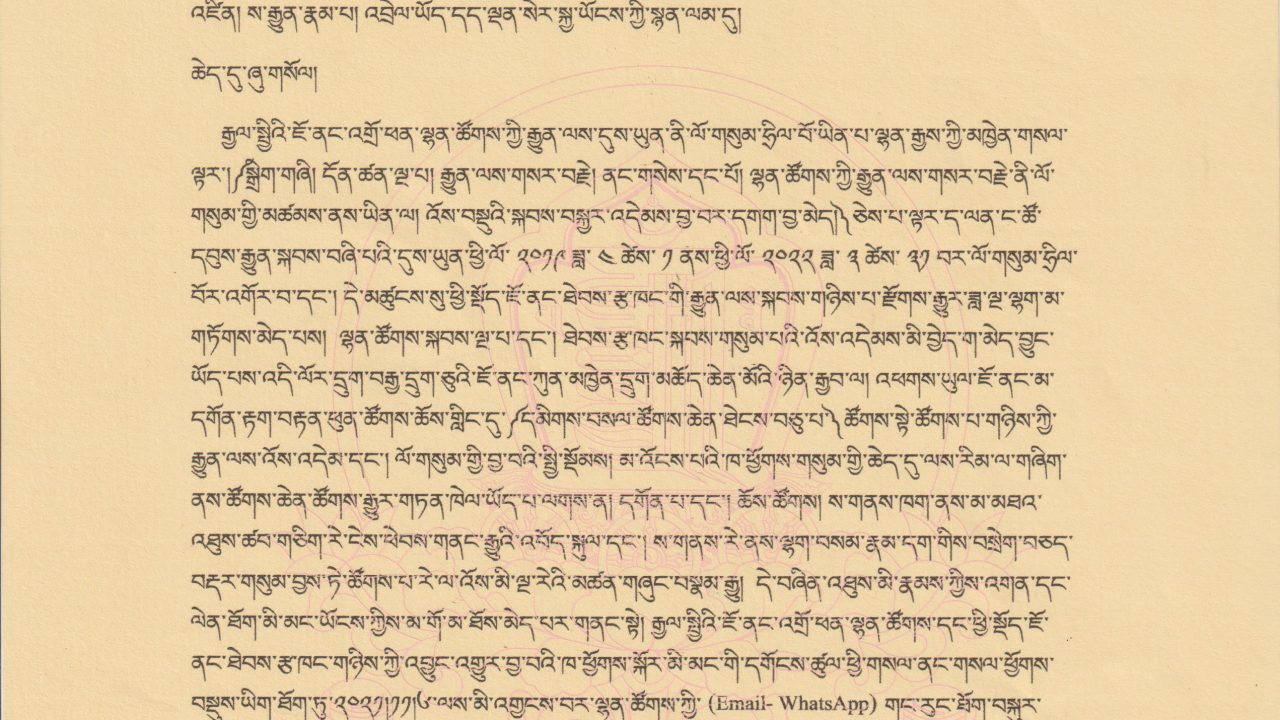 འཛིན། ས་རྒྱུན་རྣམ་པ། འབྲེལ་ཡོད་དད་ལྡན་སེར་སྐྱ་ཡོངས་ཀྱི་སྙན་ལམ་དུ།
ཆེད་དུ་ཞུ་གསོལ།
རྒྱལ་སྤྱིའི་ཇོ་ནང་འགྲོ་ཕན་ལྷན་ཚོགས་ཀྱི་རྒྱུན་ལས་དུས་ཡུན་ནི་ལོ་གསུམ་ཧྲིལ་པོ་ཡིན་པ་ལྷན་རྒྱས་ཀྱི་མཁྱེན་གསལ་
ལྟར་།༼སྒྲིག་གཞི། དོན་ཚན་ལྔ་པ། རྒྱུན་ལས་གསར་བརྗེ། ནང་གསེས་དང་པོ། ལྷན་ཚོགས་ཀྱི་རྒྱུན་ལས་གསར་བརྗེ་ནི་ལོ་
གསུམ་གྱི་མཚམས་ནས་ཡིན་ལ། འོས་བསྡུའི་སྐབས་བསྐྱར་འདེམས་བྱ་བར་དགག་བྱ་མེད།༽ ཅེས་པ་ལྟར་ད་ལན་ང་ཚོ་
དབུས་རྒྱུན་སྐབས་བཞི་པའི་དུས་ཡུན་ཕྱི་ལོ་ ༢༠༡༩ ཟླ་ ༤ ཚེས་ ༡ ནས་ཕྱི་ལོ་ ༢༠༢༢ ཟླ་ ༣ ཚེས་ ༣༡ བར་ལོ་གསུམ་ཧྲིལ་
བོར་འགོར་བ་དང་། དེ་མཚུངས་སུ་ཕྱི་སྡོད་ཇོ་ནང་ཐེབས་རྩ་ཁང་གི་རྒྱུན་ལས་སྐབས་གཉིས་པ་རྫོགས་རྒྱུར་ཟླ་ལྔ་ལྷག་མ་
གཏོགས་མེད་པས། ལྷན་ཚོགས་སྐབས་ལྔ་པ་དང་། ཐེབས་རྩ་ཁང་སྐབས་གསུམ་པའི་འོས་འདེམས་མི་བྱེད་ག་མེད་བྱུང་
ཡོད་པས་འདི་ལོར་དྲུག་བརྒྱ་དྲུག་ཅུའི་ཇོ་ནང་ཀུན་མཁྱེན་དྲུག་མཆོད་ཆེན་མོའི་ཉིན་རྒྱབ་ལ། འཕགས་ཡུལ་ཇོ་ནང་མ་
དགོན་རྟག་བརྟན་ཕུན་ཚོགས་ཆོས་གླིང་དུ་༼དམིགས་བསལ་ཚོགས་ཆེན་ཐེངས་བཅུ་པ༽ ཚོགས་སྟེ་ཚོགས་པ་གཉིས་ཀྱི་
རྒྱུན་ལས་འོས་འདེམ་དང་། ལོ་གསུམ་གྱི་བྱ་བའི་སྤྱི་སྡོམས། མ་འོངས་པའི་ཁ་ཕྱོགས་གསུམ་གྱི་ཆེད་དུ་ལས་རིམ་ལ་གཞིག་
ནས་ཚོགས་ཆེན་ཚོགས་རྒྱུར་གཏན་ཁེལ་ཡོད་པ་ལགས་ན། དགོན་པ་དང་། ཆོས་ཚོགས། ས་གནས་ཁག་ནས་མ་མཐའ་
འཐུས་ཚབ་གཅིག་རེ་ངེས་ཕེབས་གནང་རྒྱུའི་འབོད་སྐུལ་དང་། ས་གནས་རེ་ནས་ལྷག་བསམ་རྣམ་དག་གིས་བསྲེག་བཅད་
བརྡར་གསུམ་བྱས་ཏེ་ཚོགས་པ་རེ་ལ་འོས་མི་ལྔ་རེའི་མཚན་གཞུང་བསྣམ་རྒྱུ། དེ་བཞིན་འཐུས་མི་རྣམས་ཀྱིས་འགན་དང་
ལེན་ཐོག་མི་མང་ཡོངས་ཀྱིས་མ་གོ་མ་ཐོས་མེད་པར་གནང་སྟེ། རྒྱལ་སྤྱིའི་ཇོ་ནང་འགྲོ་ཕན་ལྷན་ཚོགས་དང་ཕྱི་སྡོད་ཇོ་
ནང་ཐེབས་རྩ་ཁང་གཉིས་ཀྱི་འབྱུང་འགྱུར་བྱ་བའི་ཁ་ཕྱོགས་སྐོར་མི་མང་གི་དགོངས་ཚུལ་ཕྱི་གསལ་ནང་གསལ་ཕྱོགས་
བསྡུས་ཡིག་ཐོག་ཏུ་༢༠༢༡།༡༡།༦་ལས་མི་འགྱངས་བར་ལྷན་ཚོགས་ཀྱི་ (Email- WhatsApp) གང་རུང་ཐོག་བསྐུར་